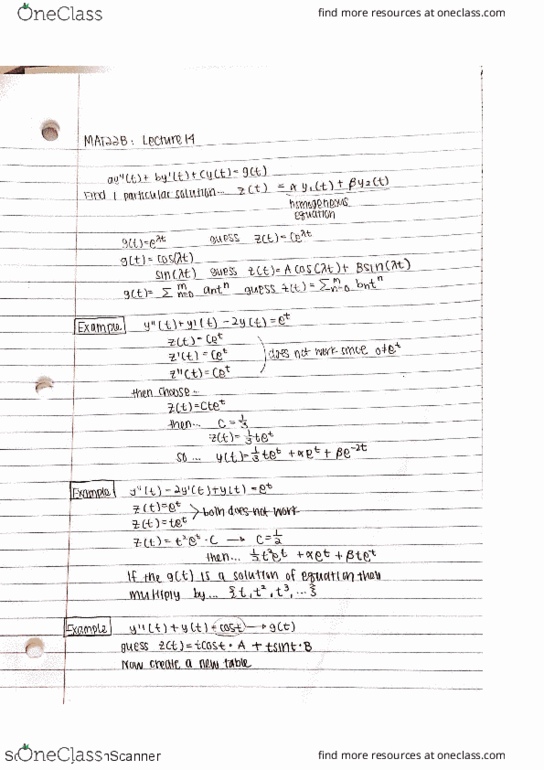 OneClass
find more resources at oneclass.com
MAT22B: Lecture 14
ay"(t) + by'(t) + cy(t) = g(t)
Find 1 particular solution... z(t) = α y₁(t) + β y₂(t)
homogeneous
equation
g(t)=e^λt guess z(t)=Ce^λt
g(t)=cos(λt)
sin(λt) guess z(t)=A cos(λt) + B sin(λt)
g(t)= Σ^m_n=0 ant^n guess z(t)=Σ^m_n=0 bnt^n
Example y"(t)+y'(t)-2y(t)=e^t
z(t)=Ce^t
z'(t)=Ce^t does not work since 0≠e^t
z"(t)=Ce^t
then choose...
z(t)=Cte^t
then... C=1/3
z(t)=1/3te^t
so... y(t)=1/3te^t+αe^t+βe^-2t
Example y"(t)-2y'(t)+y(t)=e^t
z(t)=e^t > both does not work
z(t)=te^t
z(t)=t²e^t·C → C=1/2
then... 1/2t²e^t+αe^t+βte^t
If the g(t) is a solution of equation then
multiply by... {t, t², t³, ...}
Example y"(t)+y(t)=cost→g(t)
guess z(t)=tcost·A + tsint·B
Now create a new table
OneClass
Scanner
find more resources at oneclass.com